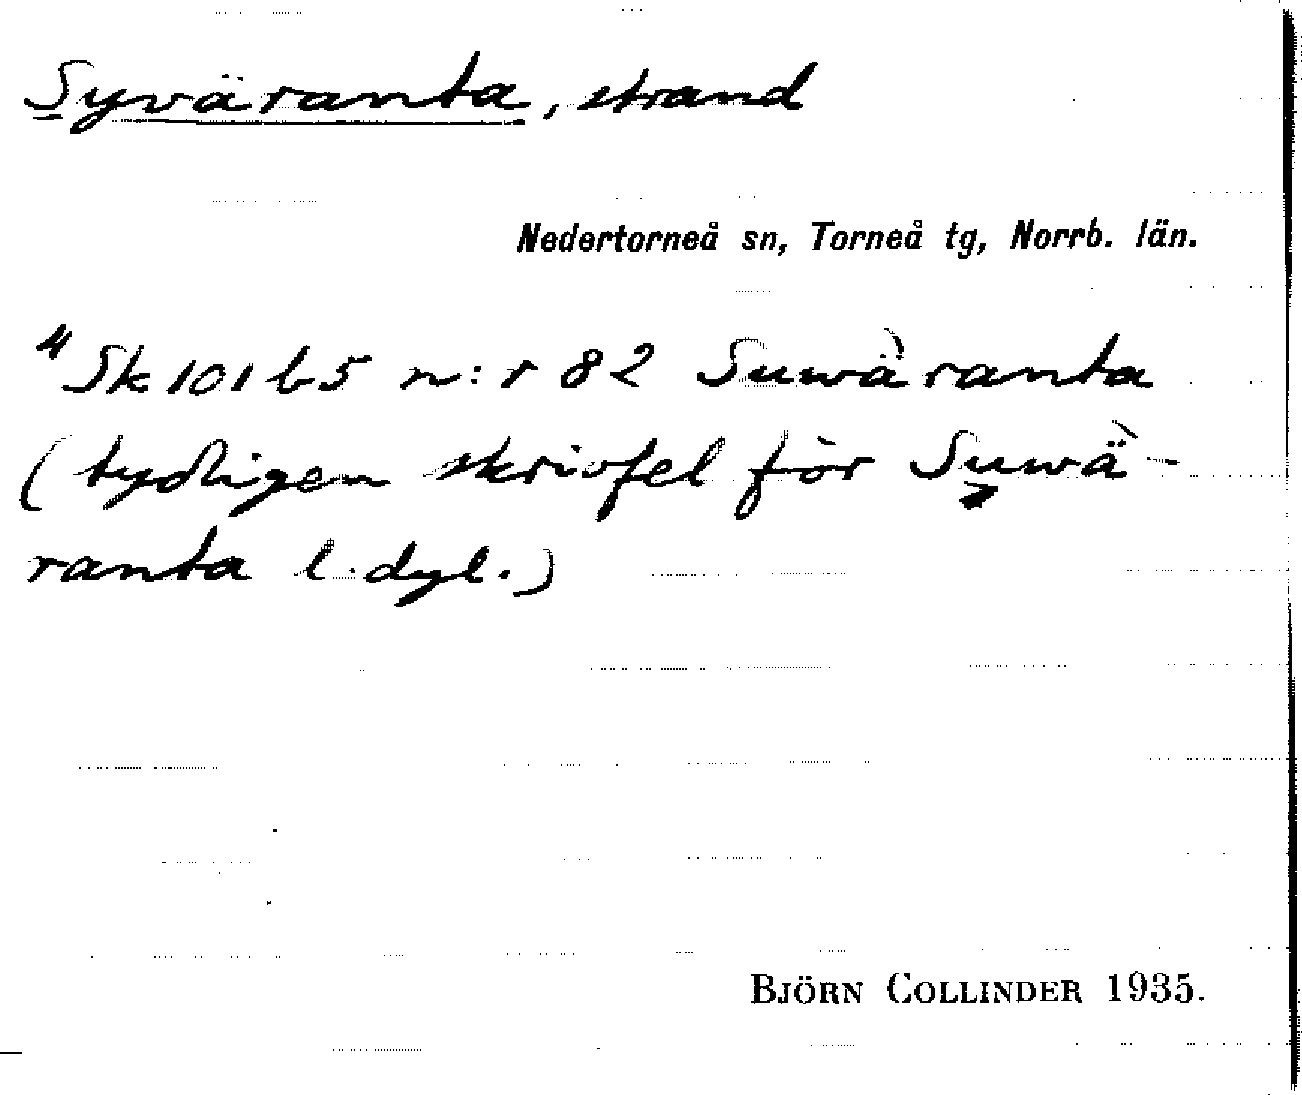 Syväranta, strand
Nedertorneå sn, Torneå tg, Norrb. län.
" Sk 101 b5 n:r 82 Suwäranta
(tydligen skrivfel för Sywä-
ranta l. dyl.)
BJÖRN COLLINDER 1935.